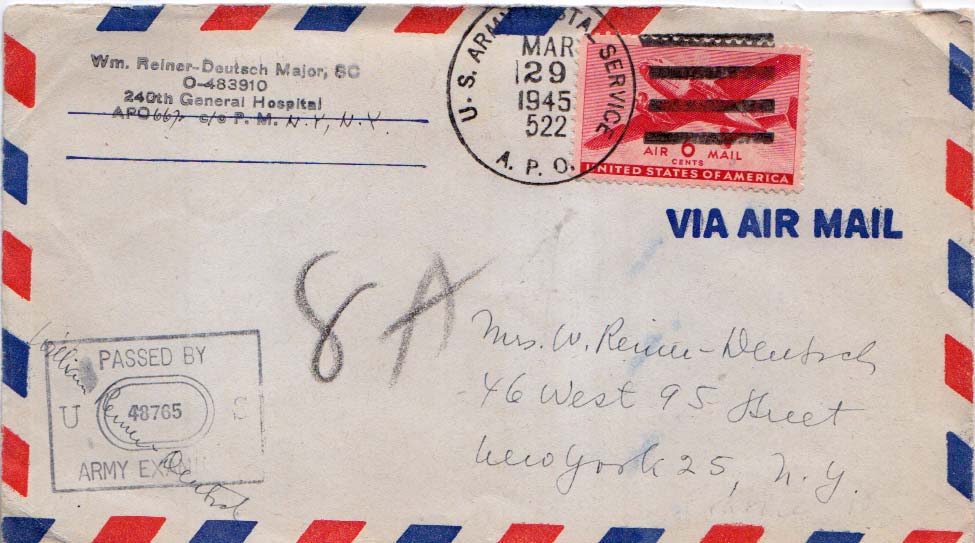 Wm. Reiner-Deutsch Major, SC
O-483910
240th General Hospital
APO 667 c/o P. M. N.Y., N.Y.
U. S. ARMY POSTAL SERVICE
MAR
29
1945
522
A. P. O.
AIR 6 MAIL
CENTS
UNITED STATES OF AMERICA
VIA AIR MAIL
8A
Mrs. W. Reiner-Deutsch
46 West 95 Street
New York 25, N.Y.
PASSED BY
U 48765 S
ARMY EXAMINER
William Reiner-Deutsch